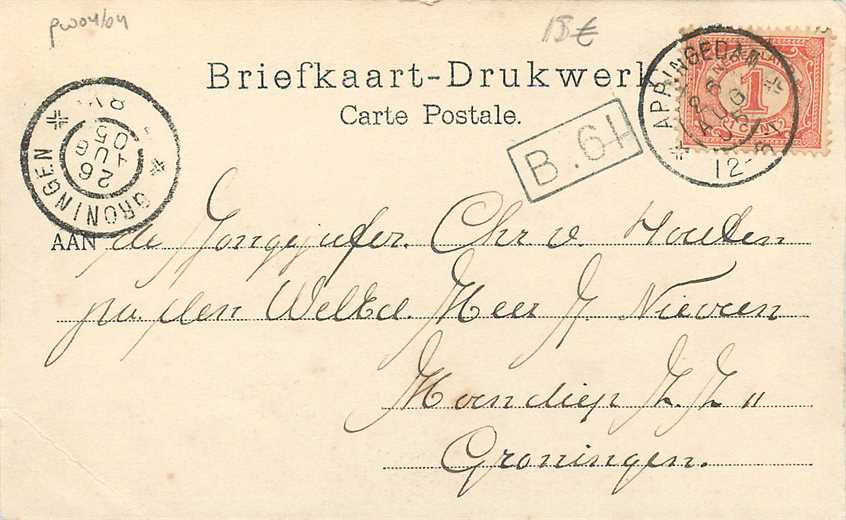 pwo4/04
18 €
Briefkaart-Drukwerk
Carte Postale.
APPINGEDAM
26 AUG 05
12-
NEDERLAND
1
CENT
B.64
GRONINGEN
26 AUG 05
8V
AAN de Jongejufer. Chr v. Houten
p/a. den WelEd. Heer J. Nieveen
Hoendiep Z.Z 11
Groningen.